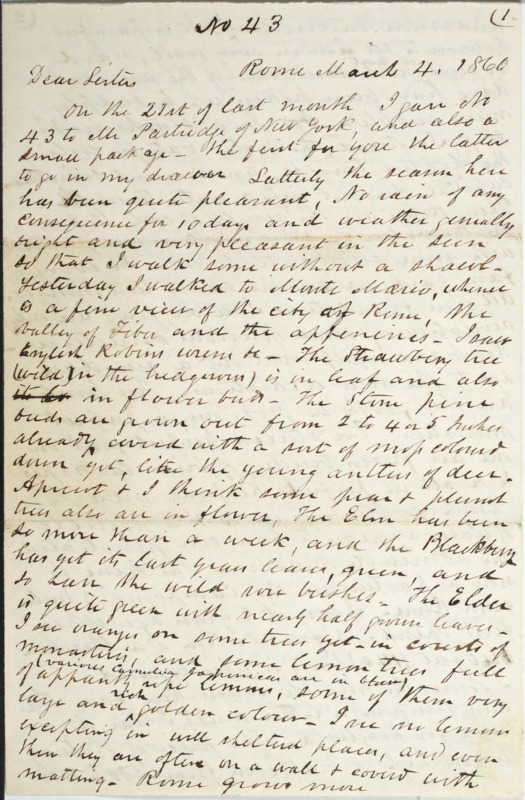 No 43
(1.
Rome March 4. 1860
Dear Sister
On the 21st of last month I gave No
43 to Mr Partridge of New York, and also a
small package - the first for you the latter
to go in my drawer Latterly the season here
has been quite pleasant, No rain of any
consequence for 10 days and weather generally
bright and very pleasant in the sun
so that I walk some without a shawl -
Yesterday I walked to Monte Mario, whence
is a fine view of the city of Rome, the
valley of Tiber and the appenines - I saw
English Robins wrens &c - The Strawberry tree
(wild) in the hedgerows) is in leaf and also
in flower buds - The Stone pine
buds are grown out from 2 to 4 or 5 Inches
already coverd with a sort of colourd
down yet, like the young antlers of deer.
Apricot & I think some pear & plumb
trees also are in flower, The Elm has been
so more than a week, and the Blackberry
has yet its last years leaves, green, and
so have the wild rose bushes - The Elder
is quite green with nearly half grown leaves -
I see oranges on some trees yet - in courts of
monasteries, and some lemon trees full
(various Camellia Japonicas are in there)
of apparently ripe lemons, some of them very
large and rich golden colour - I see no lemons
excepting in well shelterd places, and even
then they are often on a wall & coverd with
matting - Rome grows more